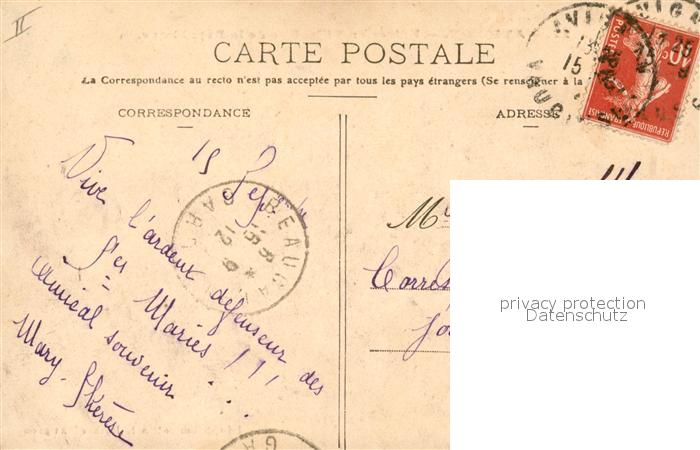 II
CARTE POSTALE
La Correspondance au recto n'est pas acceptée par tous les pays étrangers (Se renseigner à la
CORRESPONDANCE
ADRESSE
15 Sept
Vive l'ardent défenseur des
Stes Maries !!!
amical souvenir ....
Mary-Thérèse
BEAUCA
GARD
15
12
POSTES
10
REPUBLIQUE FRANÇAISE
M
Corres
Jo
privacy protection
Datenschutz
GA